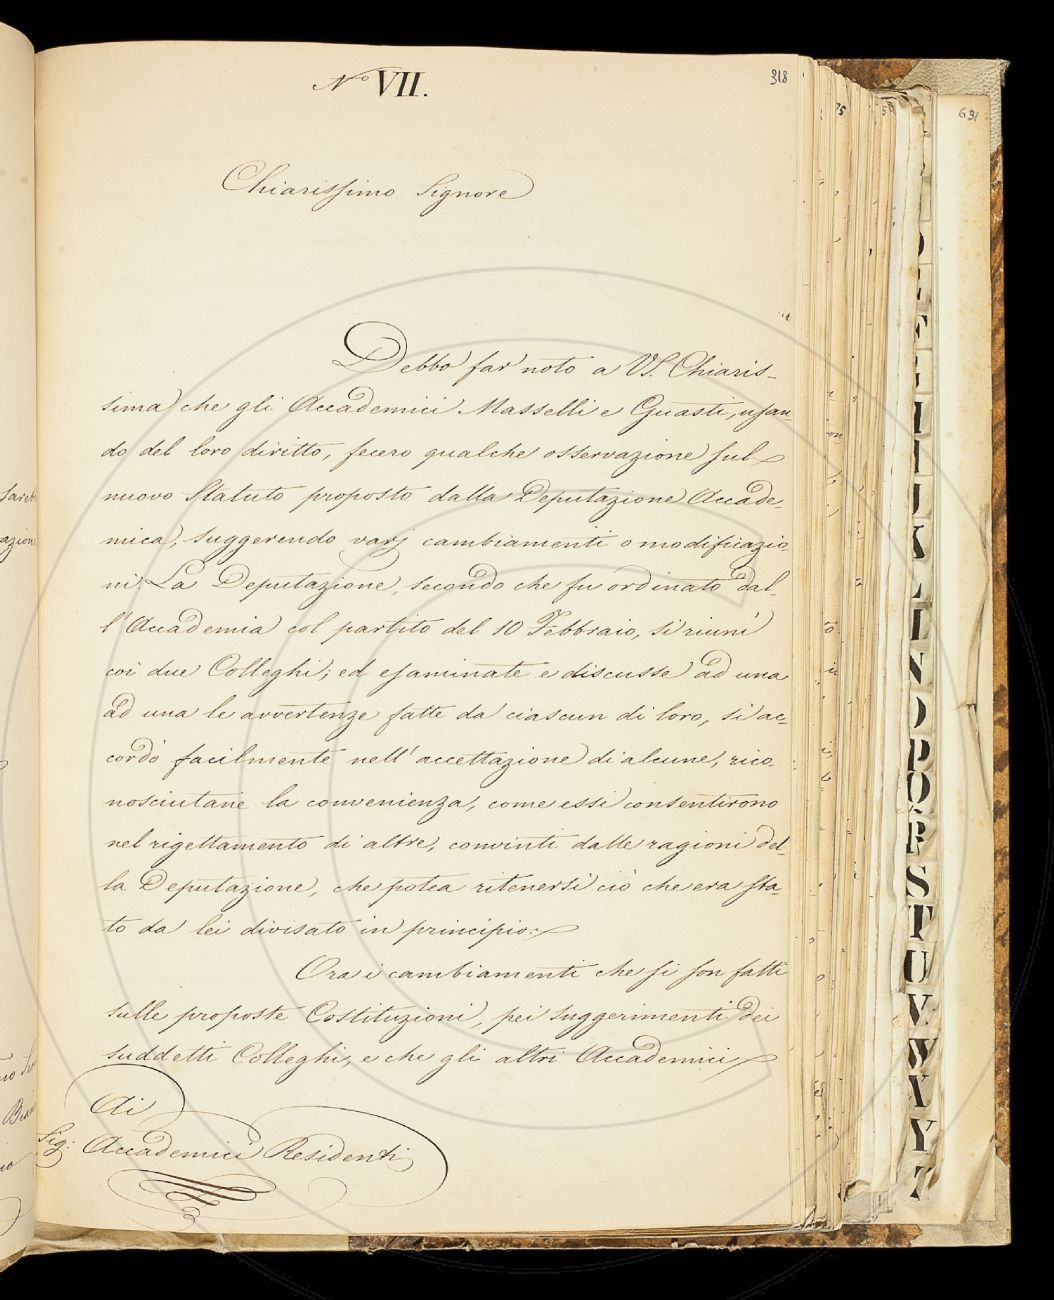 N.º VII.
318
Chiarissimo Signore
Debbo far noto a VS. Chiaris-
sima che gli Accademici Masselli e Guasti, usan-
do del loro diritto, fecero qualche osservazione sul
nuovo Statuto proposto dalla Deputazione Accade-
mica, suggerendo varj cambiamenti o modificazio-
ni. La Deputazione, secondo che fu ordinato dal-
l'Accademia col partito del 10 Febbraio, si riunì
coi due Colleghi; ed esaminate e discusse ad una
ad una le avvertenze fatte da ciascun di loro, si ac-
cordò facilmente nell'accettazione di alcune, rico-
nosciutane la convenienza, come essi consentirono
nel rigettamento di altre, convinti dalle ragioni del-
la Deputazione, che potea ritenersi ciò che era sta-
to da lei divisato in principio.
Ora i cambiamenti che si son fatti
sulle proposte Costituzioni, pei suggerimenti dei
suddetti Colleghi, e che gli altri Accademici
Ai
Sig: Accademici Residenti
691